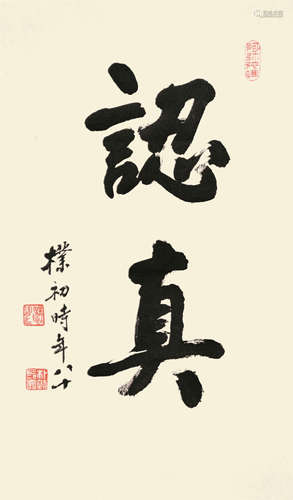 認真
樸初時年八十